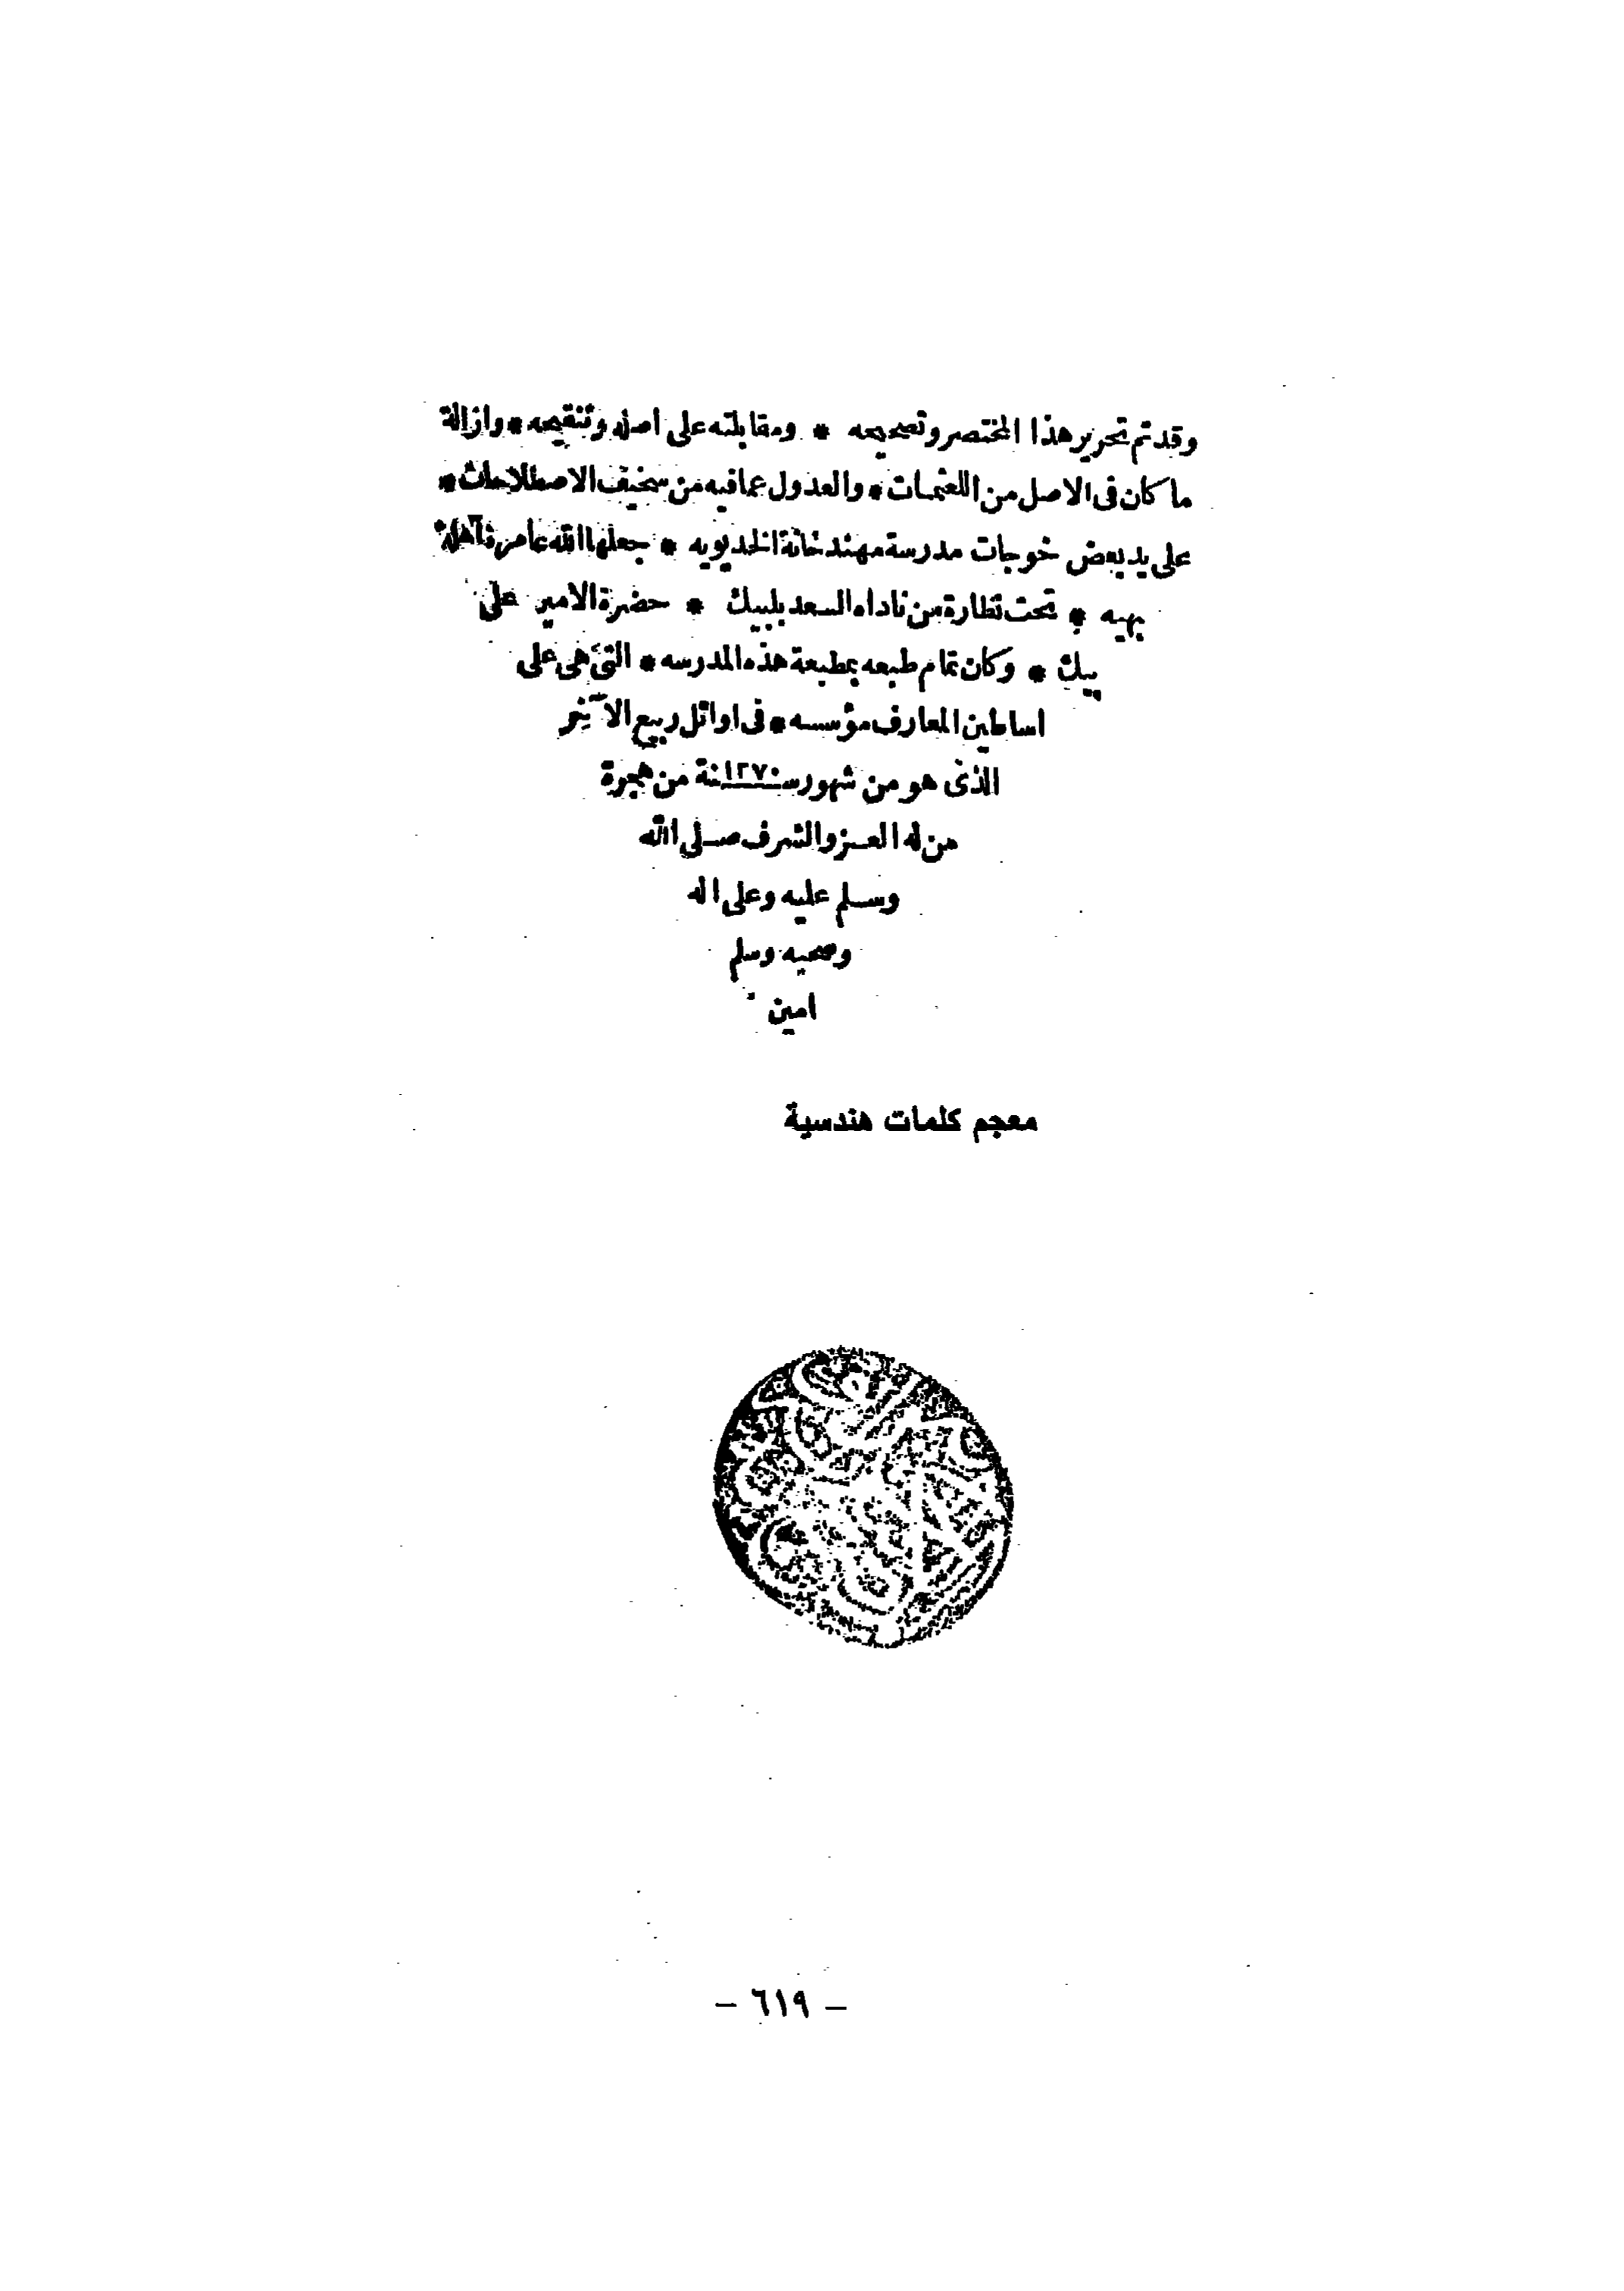 وقد تم تحرير هذا المختصر وتصحيحه * ومقابلته على اصله وتنقيحه * وازالة
ما كان فى الاصل من اللغثمات * والعدول عما فيه من سخيف الاصطلاحات *
على يد بعض خوجات مدرسة مهندسخانة الخديويه * جعلها الله عامرة آهلة
بهيه * تحت نظارة من ناداه السعد بلبيك * حضرة الامير على
بيك * وكان تمام طبعه بمطبعة هذه المدرسه * التى هى على
اساطين المعارف مؤسسه * فى اوائل ربيع الآخر
الذى هو من شهور سنة ١٢٧٠ من هجرة
من له العز والشرف صلى الله
وسلم عليه وعلى اله
وصحبه وسلم
امين
معجم كلمات هندسية
– ٦١٩ –